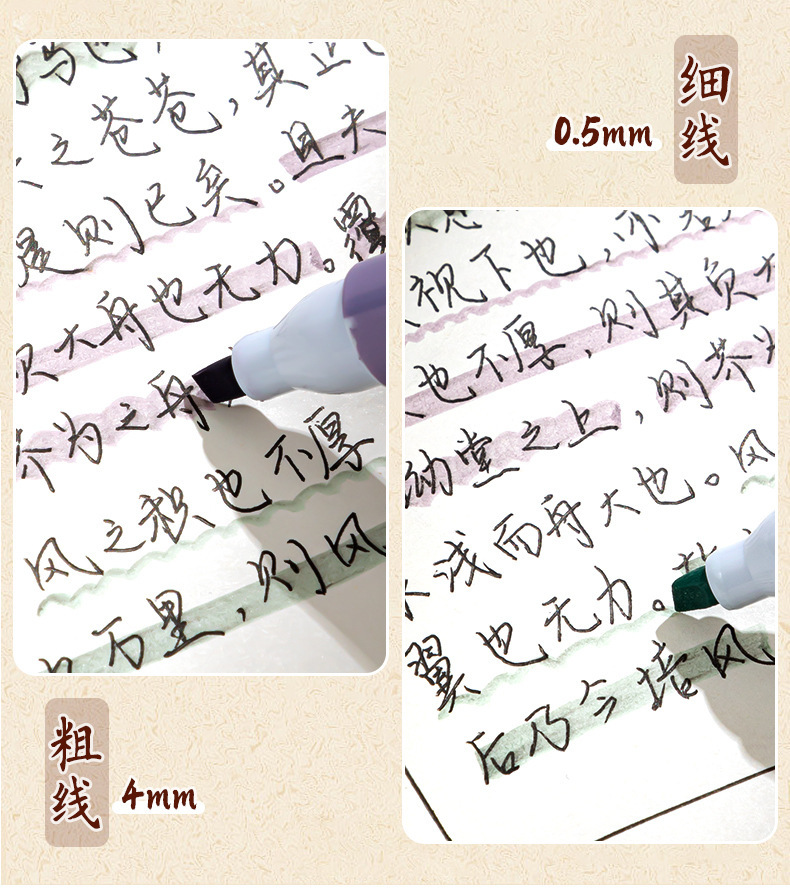 细线
0.5mm
之苍苍，其正
则已矣。且夫
大舟也无力。覆
芥为之舟
风之积也不厚
万里，则风
视下也，亦若
也不厚，则其负大
坳堂之上，则芥为
浅而舟大也。风
翼也无力。故
后乃今培风
粗线
4mm